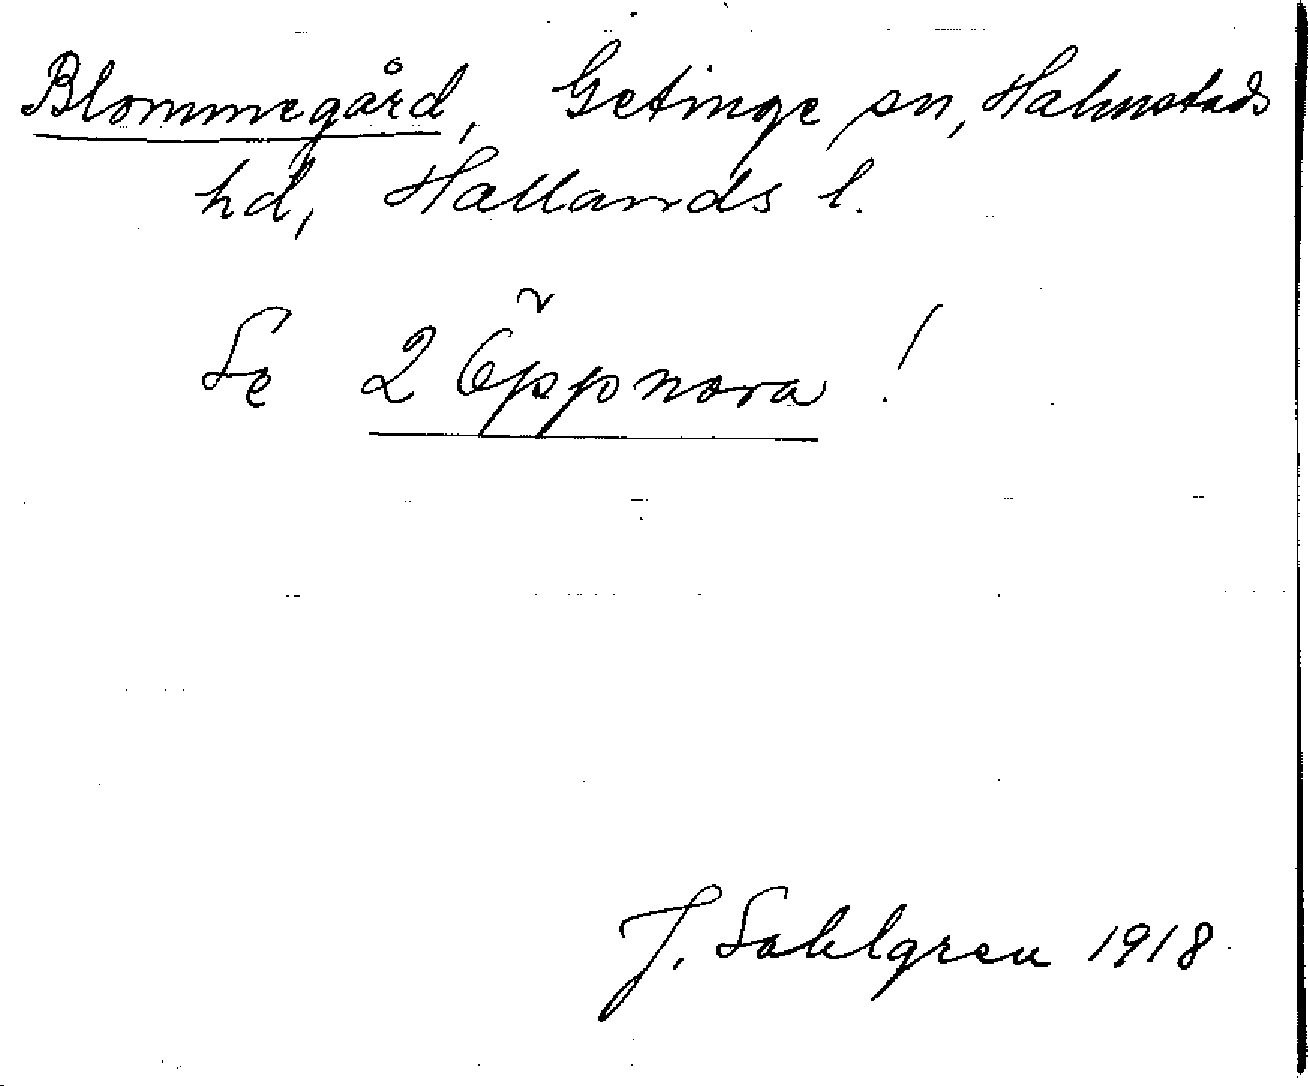 Blommegård, Getinge sn, Halmstads
hd, Hallands l.
Se 2 Öppnora!
J. Sahlgren 1918.